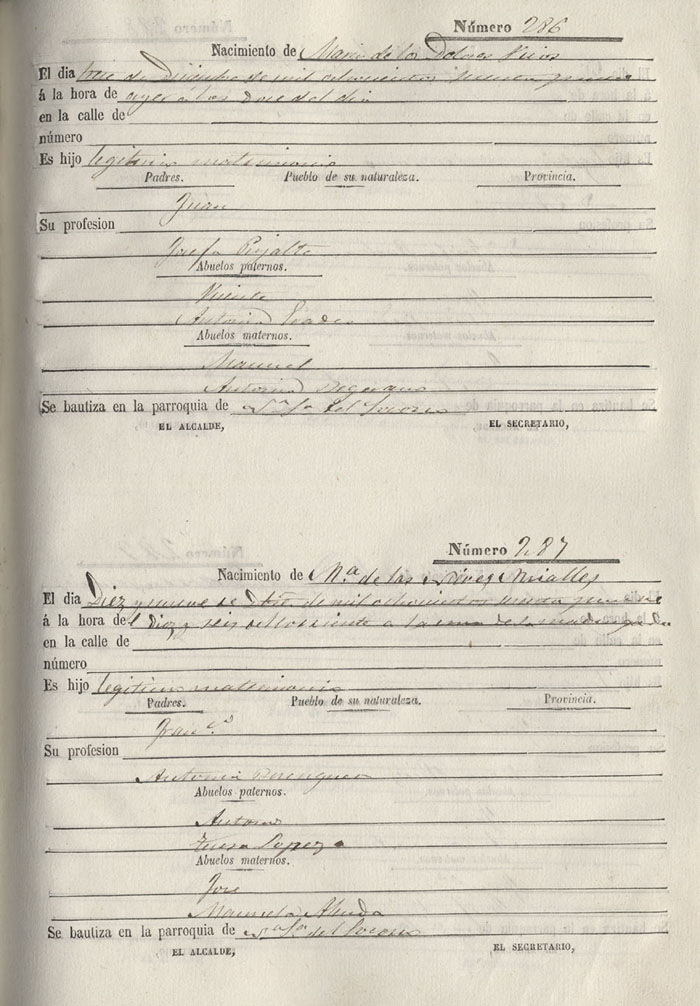 Número 286
Nacimiento de Maria de los Dolores
El dia trece de Diciembre de mil ochocientos noventa y nueve
á la hora de ayer á las doce del dia
en la calle de
número
Es hijo legitimo matrimonio
Padres. Pueblo de su naturaleza. Provincia.
Juan
Su profesion
Josefa Pujalte
Abuelos paternos.
Vicente
Antonia
Abuelos maternos.
Manuel
Antonia
Se bautiza en la parroquia de Nª Sª del Socorro
EL ALCALDE, EL SECRETARIO,
Número 287
Nacimiento de Mª de las Nieves Miralles
El dia Diez y nueve de Dbre de mil ochocientos noventa y nueve
á la hora del diez y seis del corriente a la una de la madrugada
en la calle de
número
Es hijo legitimo matrimonio
Padres. Pueblo de su naturaleza. Provincia.
Franco
Su profesion
Antonia Berenguer
Abuelos paternos.
Antonio
Teresa Lopez
Abuelos maternos.
Jose
Manuela
Se bautiza en la parroquia de Nª Sª del Socorro
EL ALCALDE, EL SECRETARIO,